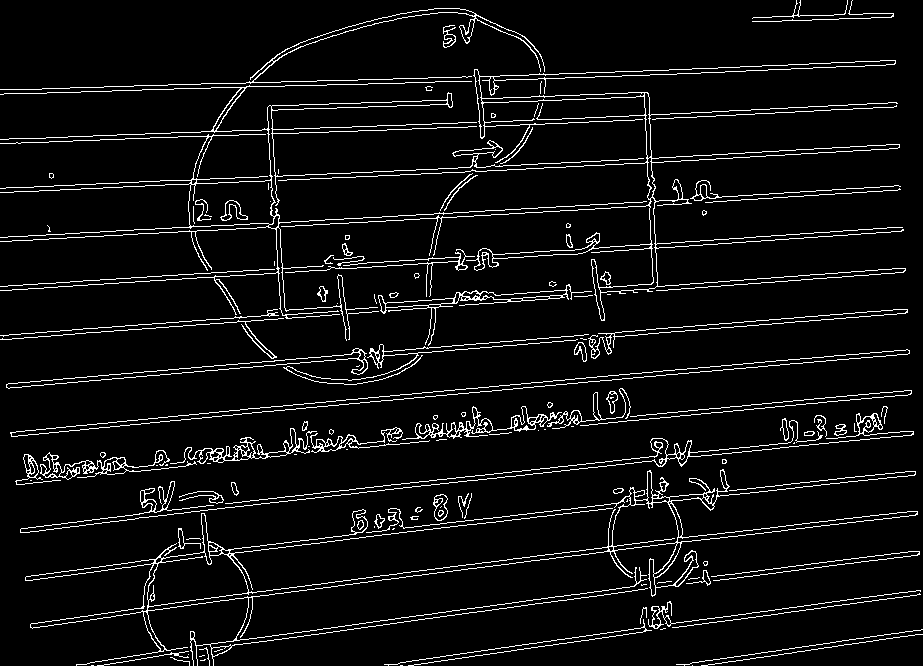 5V
2 Ω
1 Ω
i
2 Ω
i
3V
13V
Determine a corrente elétrica no circuito abaixo (i)
8V
i
5V i
5 + 3 = 8 V
i
13V